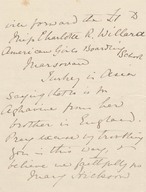 you forward this to D
Miss Charlotte R. Willard
American Girls Boarding
School
Marsovan
Turkey in Asia
Saying that is in
from her
brother in England.
troubling
you in this way, &
believe me faithfully yrs
Mary